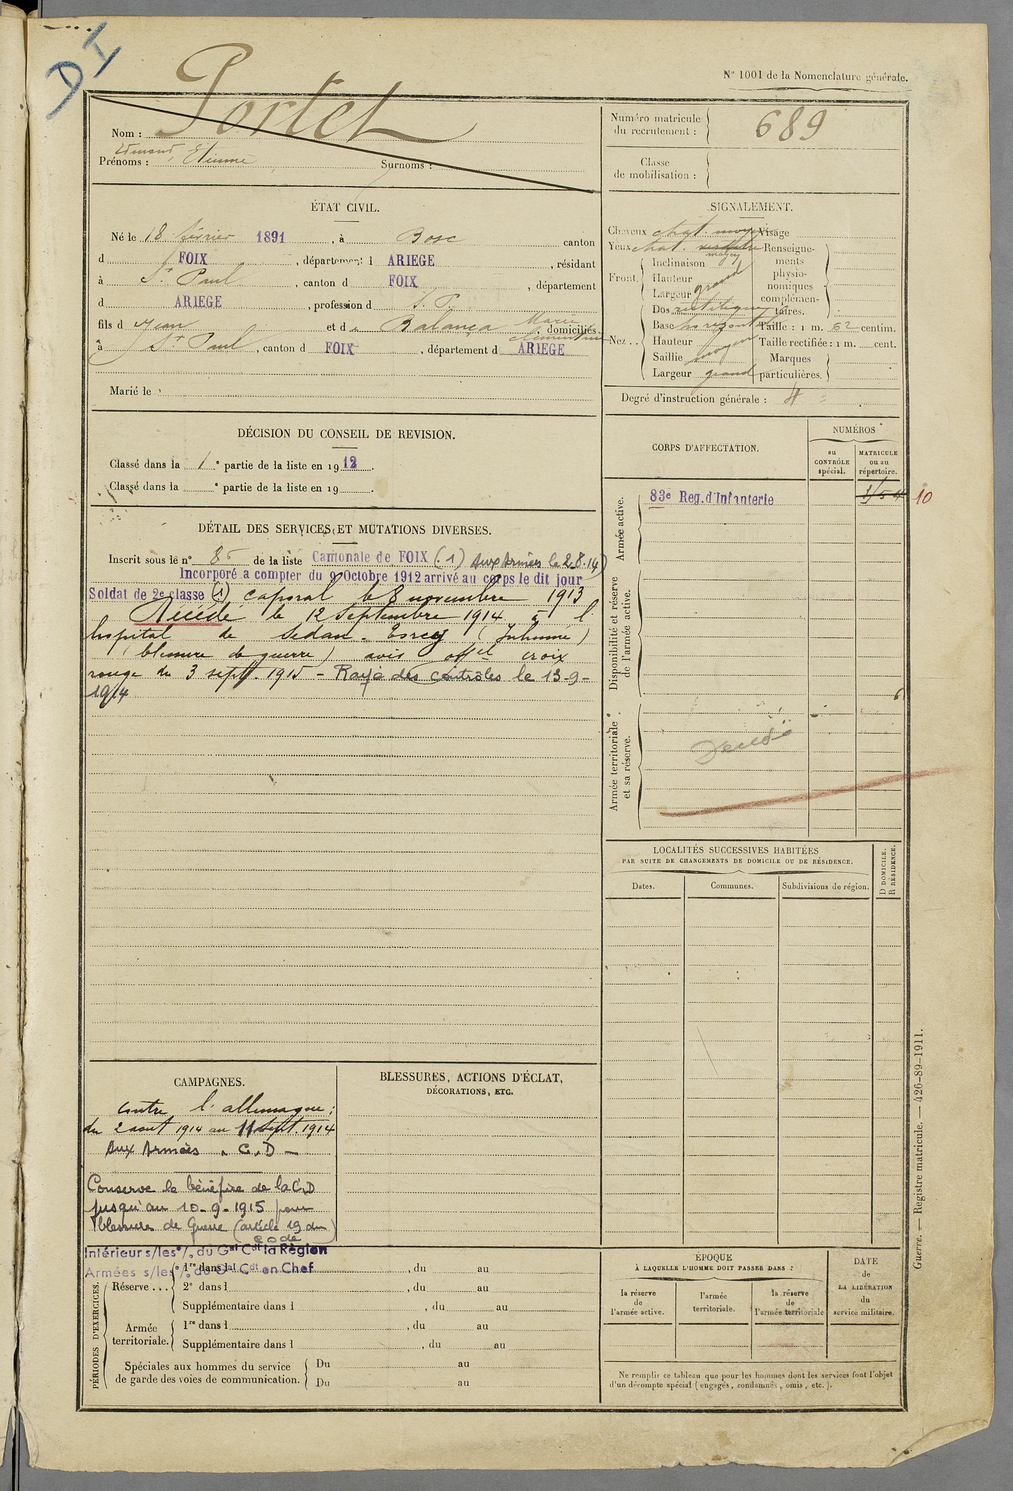 DI
N° 1001 de la Nomenclature générale.
Nom : Portet
Prénoms : Edmond, Etienne
Surnoms :
Numéro matricule du recrutement : 689
Classe de mobilisation :
ÉTAT CIVIL.
Né le 18 février 1891, à Bosc canton
d FOIX, département d ARIEGE, résidant
à St Paul, canton d FOIX, département
d ARIEGE, profession d S. P.
fils d Jean et d Balança Marie Clémentine, domiciliés
à St Paul, canton d FOIX, département d ARIEGE
Marié le
SIGNALEMENT.
Cheveux chat. moy
Yeux chat.
Front. Inclinaison moyen
Hauteur grand
Largeur
Nez.. Dos rectiligne
Base horizontal
Hauteur
Saillie moyen
Largeur grand
Visage
Renseignements physionomiques complémentaires.
Taille : 1 m. 62 centim.
Taille rectifiée : 1 m. cent.
Marques particulières.
Degré d'instruction générale :
DÉCISION DU CONSEIL DE REVISION.
Classé dans la 1e partie de la liste en 1912.
Classé dans la e partie de la liste en 19 .
CORPS D'AFFECTATION.
NUMÉROS
au CONTRÔLE spécial.
MATRICULE ou au répertoire.
Armée active.
83e Reg. d'Infanterie
10
Disponibilité et réserve de l'armée active.
Armée territoriale et sa réserve.
Décédé
DÉTAIL DES SERVICES ET MUTATIONS DIVERSES.
Inscrit sous le n° 85 de la liste Cantonale de FOIX (1) Aux Armées le 2.8.14)
Incorporé a compter du 9 Octobre 1912 arrivé au corps le dit jour
Soldat de 2e classe (1) caporal le 8 novembre 1913
Décédé le 12 septembre 1914 à l
hospital de Sedan - Torcy (Inhumé)
(blessure de guerre) avis offel croix
rouge du 3 sept. 1915 - Rayé des contrôles le 13-9-
1914
LOCALITÉS SUCCESSIVES HABITÉES
PAR SUITE DE CHANGEMENTS DE DOMICILE OU DE RÉSIDENCE.
Dates.
Communes.
Subdivisions de région.
D DOMICILE.
R RÉSIDENCE.
CAMPAGNES.
contre l'allemagne :
du 2 août 1914 au 11 sept. 1914
Aux Armées . C. D -
Conserve le bénéfice de la C.D
jusqu'au 10-9-1915 pour
blessures de Guerre (article 19 du
code
BLESSURES, ACTIONS D'ÉCLAT,
DÉCORATIONS, ETC.
Intérieur s/les °/. du Gal Cdt la Région
Armées s/les °/. du Gal Cdt en Chef
PÉRIODES D'EXERCICES.
Réserve ... 1re dans l , du au
2e dans l , du au
Supplémentaire dans l , du au
Armée territoriale. 1re dans l , du au
Supplémentaire dans l , du au
Spéciales aux hommes du service de garde des voies de communication. Du au
Du au
ÉPOQUE
À LAQUELLE L'HOMME DOIT PASSER DANS :
la réserve de l'armée active.
l'armée territoriale.
la réserve de l'armée territoriale
DATE de LA LIBÉRATION du service militaire.
Ne remplir ce tableau que pour les hommes dont les services font l'objet
d'un décompte spécial (engagés, condamnés, omis, etc.).
Guerre. — Registre matricule. — 426-89-1911.